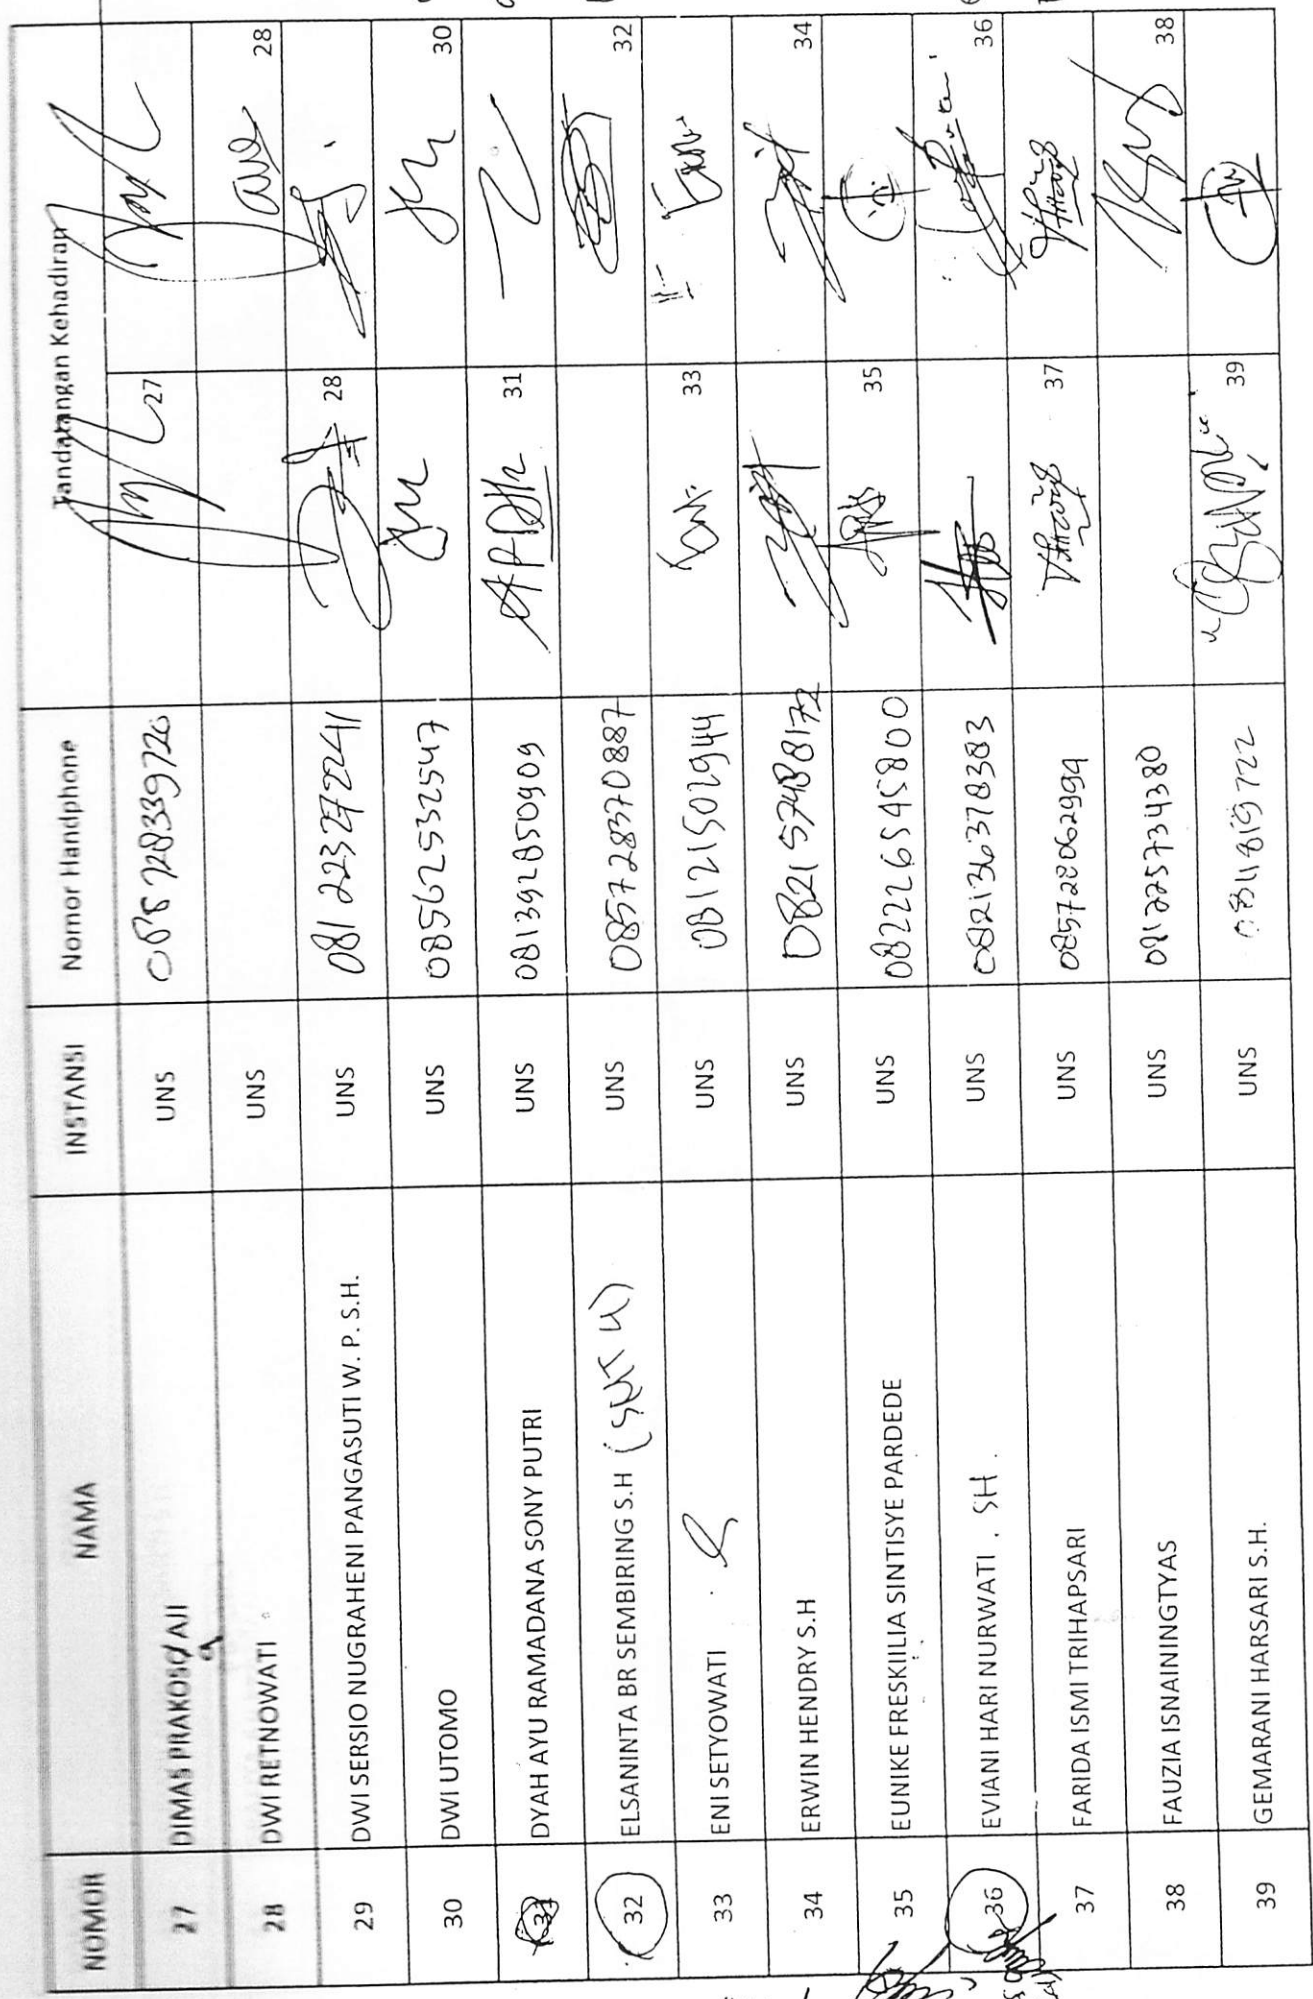 NOMOR NAMA INSTANSI Nomor Handphone Tandatangan Kehadiran
27 DIMAS PRAKOSO AJI UNS 27
a
28 DWI RETNOWATI UNS 28
29 DWI SERSIO NUGRAHENI PANGASUTI W. P. S.H. UNS 081223272241 28
30 DWI UTOMO UNS 08562532547 30
31 DYAH AYU RAMADANA SONY PUTRI UNS 081392850909 31
32 ELSANINTA BR SEMBIRING S.H UNS 085728370887 32
33 ENI SETYOWATI UNS 08121502944 33
34 ERWIN HENDRY S.H UNS 34
35 EUNIKE FRESKILIA SINTISYE PARDEDE UNS 082226545800 35
36 EVIANI HARI NURWATI . SH . UNS 082136378383 36
37 FARIDA ISMI TRIHAPSARI UNS 085728062999 37
38 FAUZIA ISNAININGTYAS UNS 081225734380 38
39 GEMARANI HARSARI S.H. UNS 0811819722 39